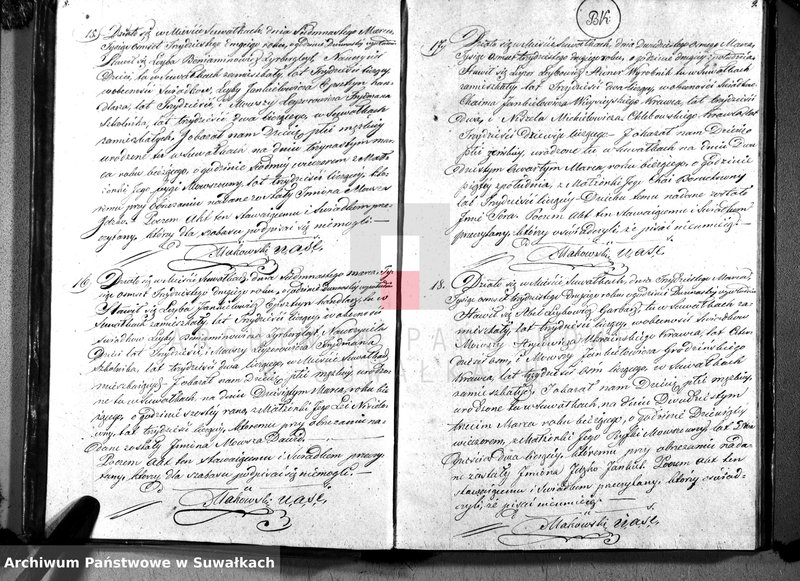 8.
15. Działo się w Mieście Suwałkach, dnia Siedmnastego Marca,
Tysiąc Ośmset Trzydziestego drugiego roku, o godzinie dwunastej
Stawił się Leyba Beniaminowicz Nauczyciel
Dzieci, tu w Suwałkach zamieszkały, lat Trzydzieści liczący
w obecności Świadków, Leyby Jankielowicza Epsztyn han-
dlarza, lat Trzydzieści i Mowszy Leyzerowicza Frydmana
Szkolnika, lat trzydzieści dwa liczącego, w Suwałkach
zamieszkałych, i okazał nam Dziecię płci męzkiej
urodzone tu w Suwałkach na dniu trzynastym mar-
ca roku bieżącego, o godzinie siódmej wieczorem z Małż-
onki Jego Mowszowny, lat trzydzieści liczącej, któ-
remu przy obrzezaniu nadane zostały Imiona Mowsza
Poczem Akt ten stawaiącemu i Świadkom prze-
czytany, który dla szabasu podpisać się niemogli.
Makowski U.A.S.C.
16. Działo się w Mieście Suwałkach, dnia Siedmnastego marca, Ty-
siąc Ośmset Trzydziestego drugiego roku, o godzinie dwunastej
Stawił się Leyba Jankielowicz Epsztyn handlarz, tu w
Suwałkach zamieszkały, lat Trzydzieści liczący w obecności
Świadków Leyby Beniaminowicza Nauczyciela
Dzieci lat Trzydzieści, i Mowszy Leyzerowicza Frydmana
Szkolnika, lat trzydzieści dwa liczącego, w Mieście Suwałkach
mieszkaiących, i okazał nam dziecię, płci męzkiej, urodzo-
ne tu w Suwałkach, na dniu Dwunastym Marca, roku bie-
żącego, o godzinie szostej rano, z Małżonki Jego Lei
lat trzydzieści liczącej, któremu przy obrzezaniu na-
dane zostały Imiona Mowsza Dawid.
Poczem Akt ten stawaiącemu i Świadkom przeczy-
tany, który dla szabasu podpisać się niemogli.
Makowski U.A.S.C.
BK
9.
17. Działo się w Mieście Suwałkach, dnia dwudziestego osmego Marca,
Tysiąc ośmset trzydziestego drugiego roku, o godzinie drugiej z południa,
Stawił się Leyzor Wyrobnik tu w Suwałkach
zamieszkały lat Trzydzieści dwa liczący, w obecności Świadków
Chaima Jankielowicza Krawca, lat trzydzieści
dwa, i Noszela Michelowicza Chlebowskiego Krawca, lat
trzydzieści Dziewięć liczącego. I okazał nam Dziecię
płci żeńskiej, urodzone tu w Suwałkach, na dniu Dwu-
dziestym Czwartym Marca, roku bieżącego, o godzinie
piątej z południa, z Małżonki Jego Chai Boruchowny
lat Trzydzieści liczącej. Dziecku temu nadane zostało
Imie Sora. Poczem Akt ten stawaiącemu i Świadkom
przeczytany, którzy oświadczyli że pisać nieumieią.
Makowski U.A.S.C.
18. Działo się w Mieście Suwałkach, dnia Trzydziestego Marca,
Tysiąc ośmset trzydziestego drugiego roku, o godzinie dwunastej
Stawił się Abel Leybowicz Garbarz, tu w Suwałkach za-
mieszkały, lat trzydzieści liczący, w obecności Świadków
Mowszy Krawca, lat Czter-
dzieści ośm, i Mowszy Jankielowicza Grodzińskiego
Krawca, lat trzydzieści ośm liczącego, w Suwałkach
zamieszkałych. I okazał nam Dziecię, płci męzkiej,
urodzone tu w Suwałkach, na dniu Dwudziestym
trzecim Marca roku bieżącego, o godzinie Dziewiątej
wieczorem, z Małżonki Jego Mowszowny, lat
dwa liczącej, któremu przy obrzezaniu nada-
ne zostały Imiona Jankiel. Poczem Akt ten
stawaiącemu i Świadkom przeczytany, którzy oświad-
czyli, że pisać nieumieią.
Makowski U.A.S.C.
ARCHIWUM PAŃSTWOWE
W SUWAŁKACH
Archiwum Państwowe w Suwałkach